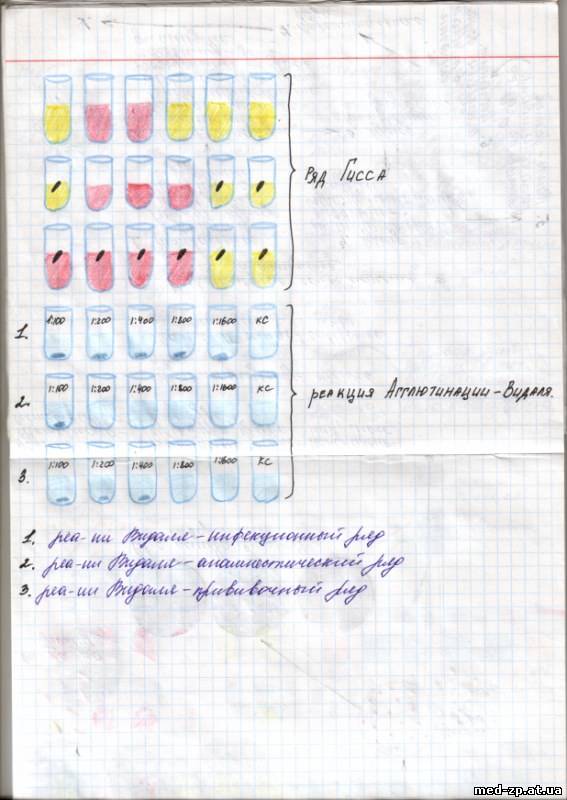 Ряд Гисса
1. 1:100 1:200 1:400 1:800 1:1600 КС
2. 1:100 1:200 1:400 1:800 1:1600 КС
реакция Агглютинации-Видаля.
3. 1:100 1:200 1:400 1:800 1:1600 КС
1. реа-ии Видаля - инфекционный ряд
2. реа-ии Видаля - анамнестический ряд
3. реа-ии Видаля - прививочный ряд
med-zp.at.ua